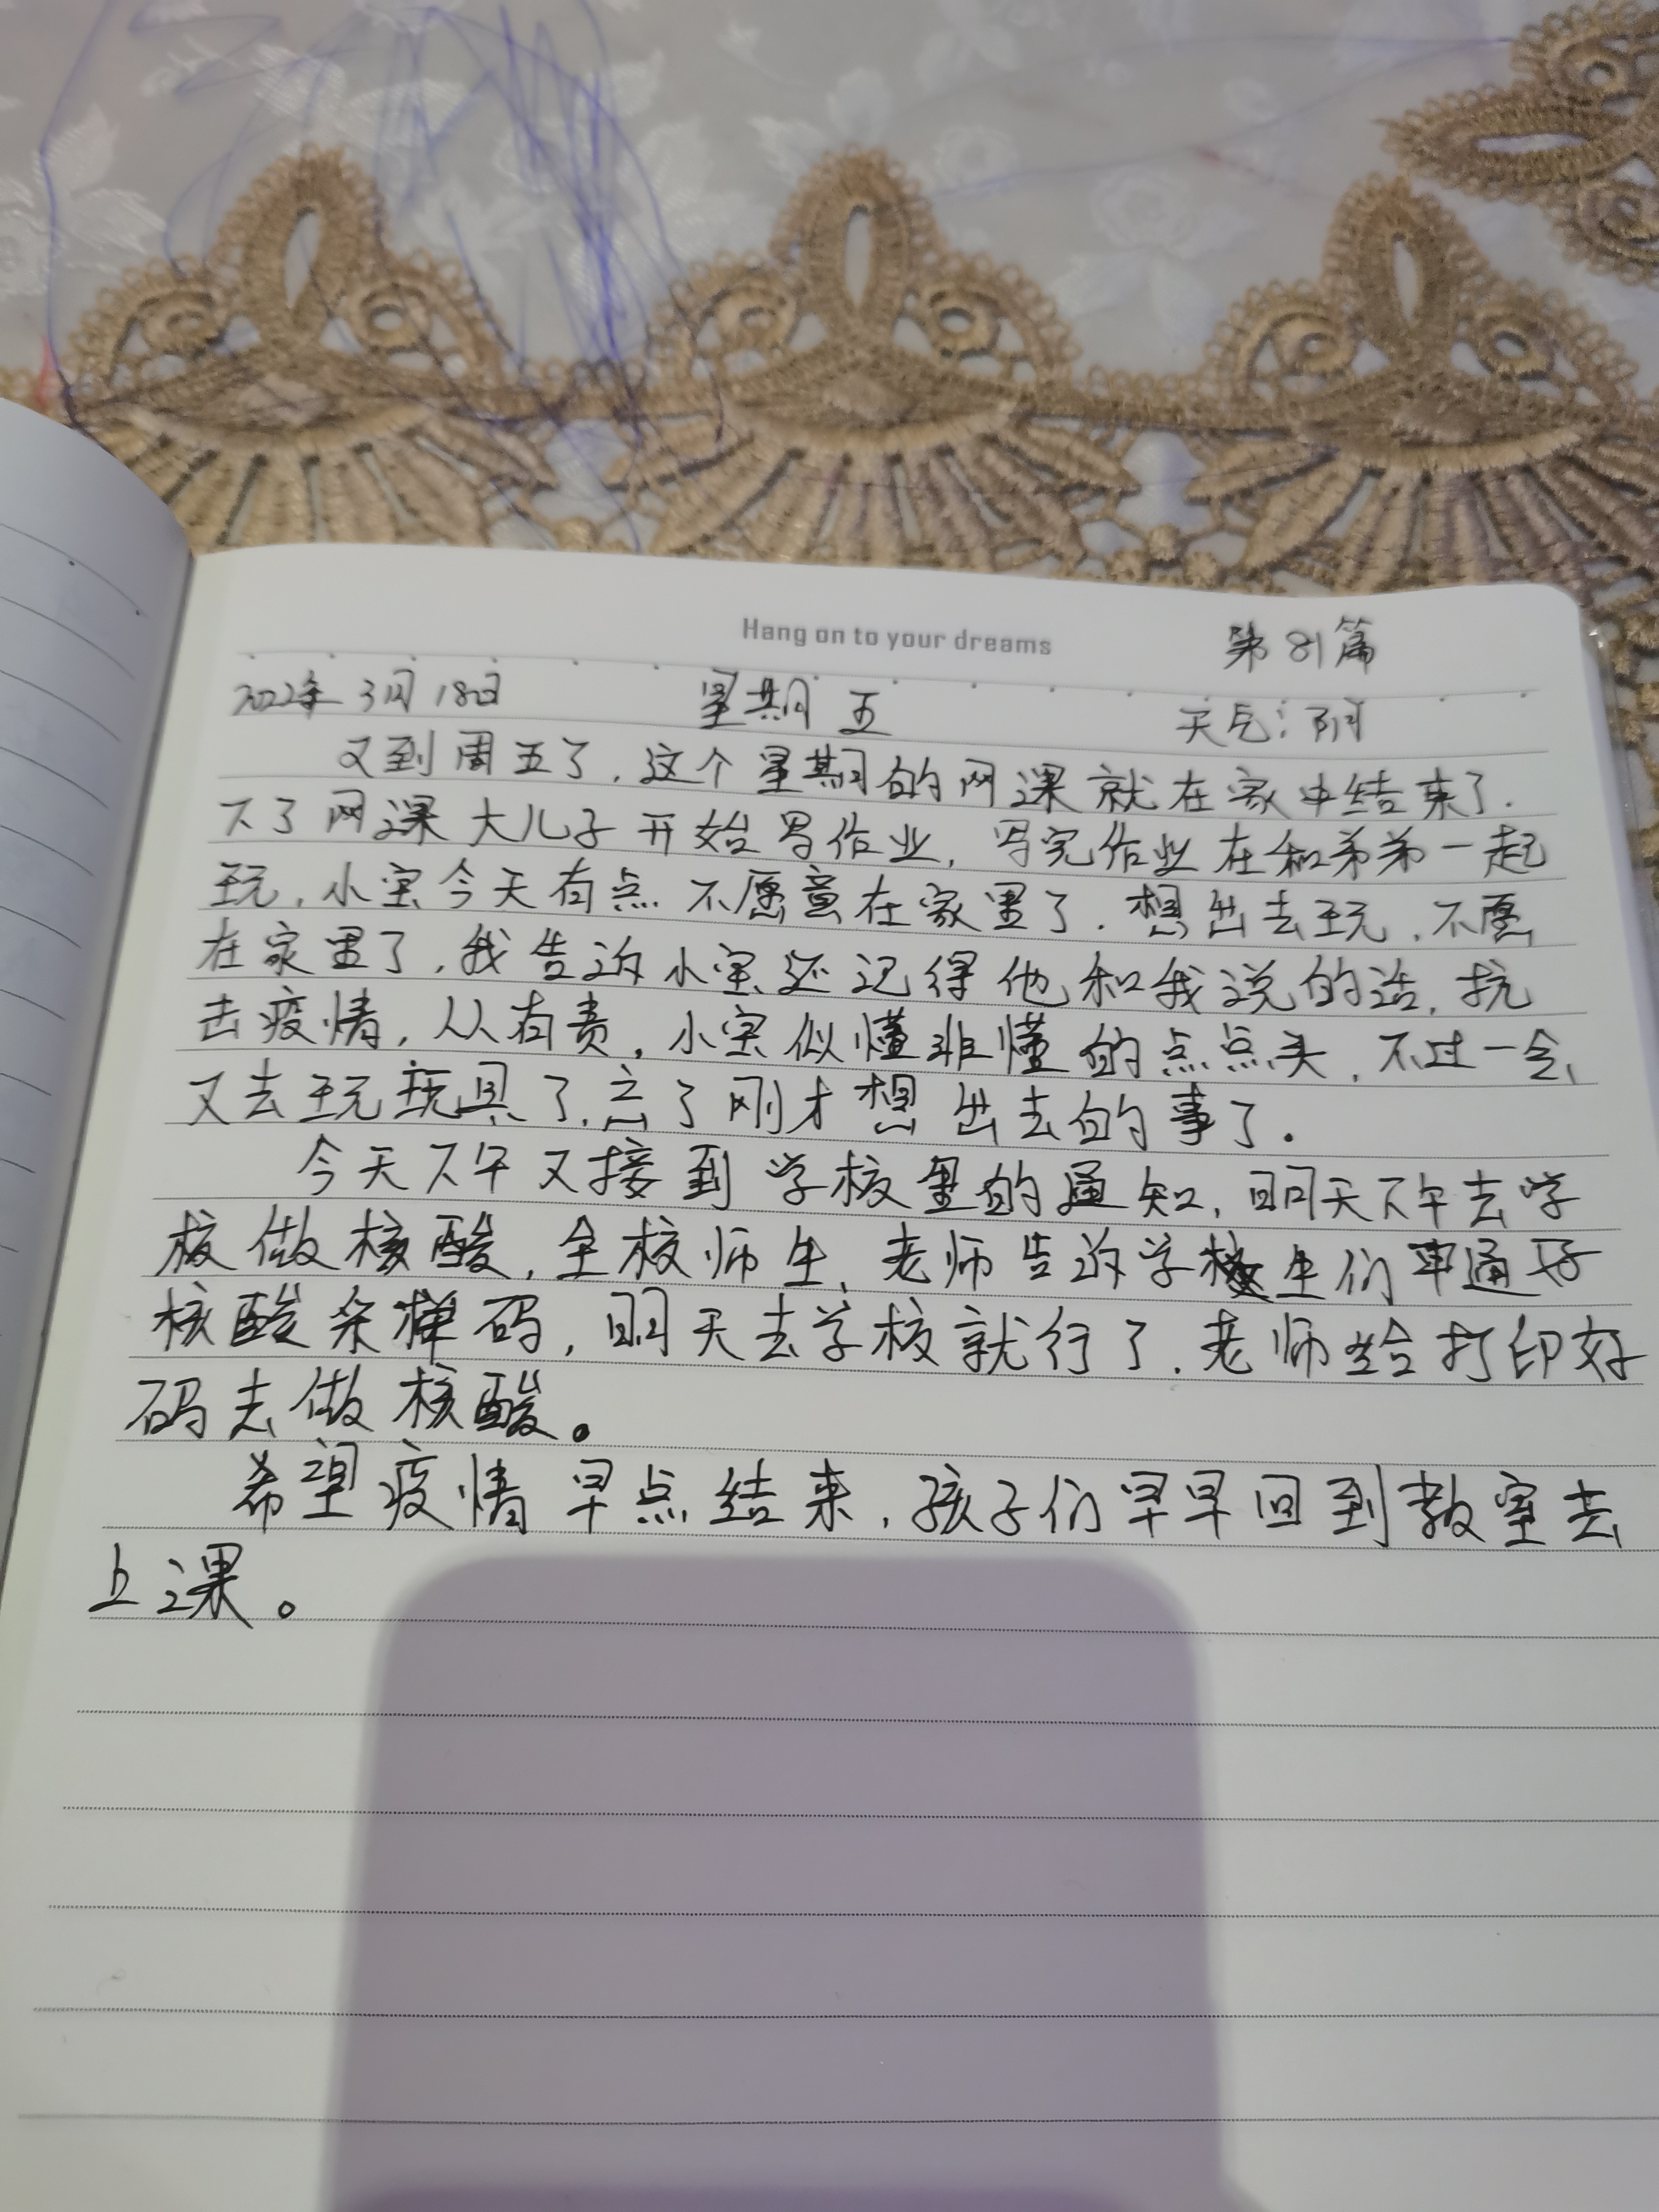 Hang on to your dreams
第81篇
2022年3月18日 星期五 天气：阴
又到周五了，这个星期的网课就在家中结束了.
下了网课大儿子开始写作业，写完作业在和弟弟一起
玩，小宝今天有点不愿意在家里了.想出去玩，不愿
在家里了，我告诉小宝还记得他和我说的话，抗
击疫情，从有责，小宝似懂非懂的点点头，不过一会
又去玩玩具了，忘了刚才想出去的事了.
今天下午又接到学校里的通知，明天下午去学
校做核酸，全校师生，老师告诉学生们申通好
核酸采样码，明天去学校就行了.老师给打印好
码去做核酸。
希望疫情早点结束，孩子们早早回到教室去
上课。